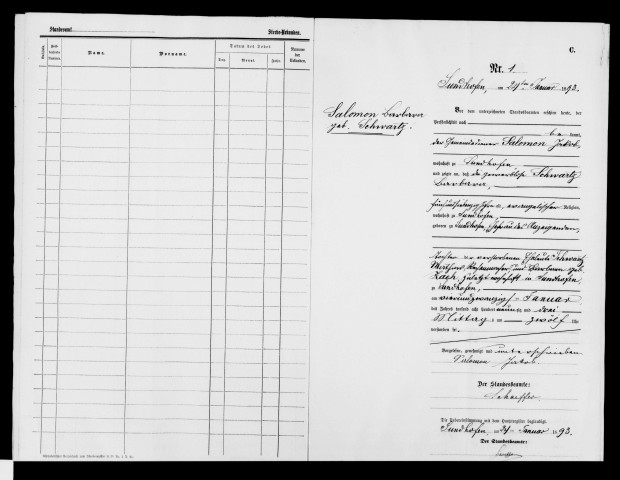 Standesamt
Sterbe-Urkunden.
Name.
Vorname.
Datum des Todes
Tag.
Monat
Jahr.
Nummer der Urkunden.
C.
Nr. 1
Sundhofen, am 24ten Januar 1893.
Salomon Barbara
geb. Schwartz.
Vor dem unterzeichneten Standesbeamten erschien heute, der
Persönlichkeit nach
be kannt,
der Gemeindediener Salomon Jakob,
wohnhaft zu Sundhofen
und zeigte an, daß die gewerblose Schwartz
Barbara,
alt, evangelischer Religion,
wohnhaft zu Sundhofen,
geboren zu Sundhofen, Ehefrau des Anzeigenden,
Tochter der verstorbenen Eheleute Schwartz
Mathias, und Barbara geb.
zuletzt wohnhaft in Sundhofen
zu Sundhofen,
am vierundzwanzigsten Januar
des Jahres tausend acht hundert neunzig und drei
Mittags um zwölf Uhr
verstorben sei.
Vorgelesen, genehmigt und unterschrieben
Salomon Jakob
Der Standesbeamte:
Schaeffer
Die Uebereinstimmung mit dem Hauptregister beglaubigt.
Sundhofen, am 24 Januar 1893.
Der Standesbeamte: